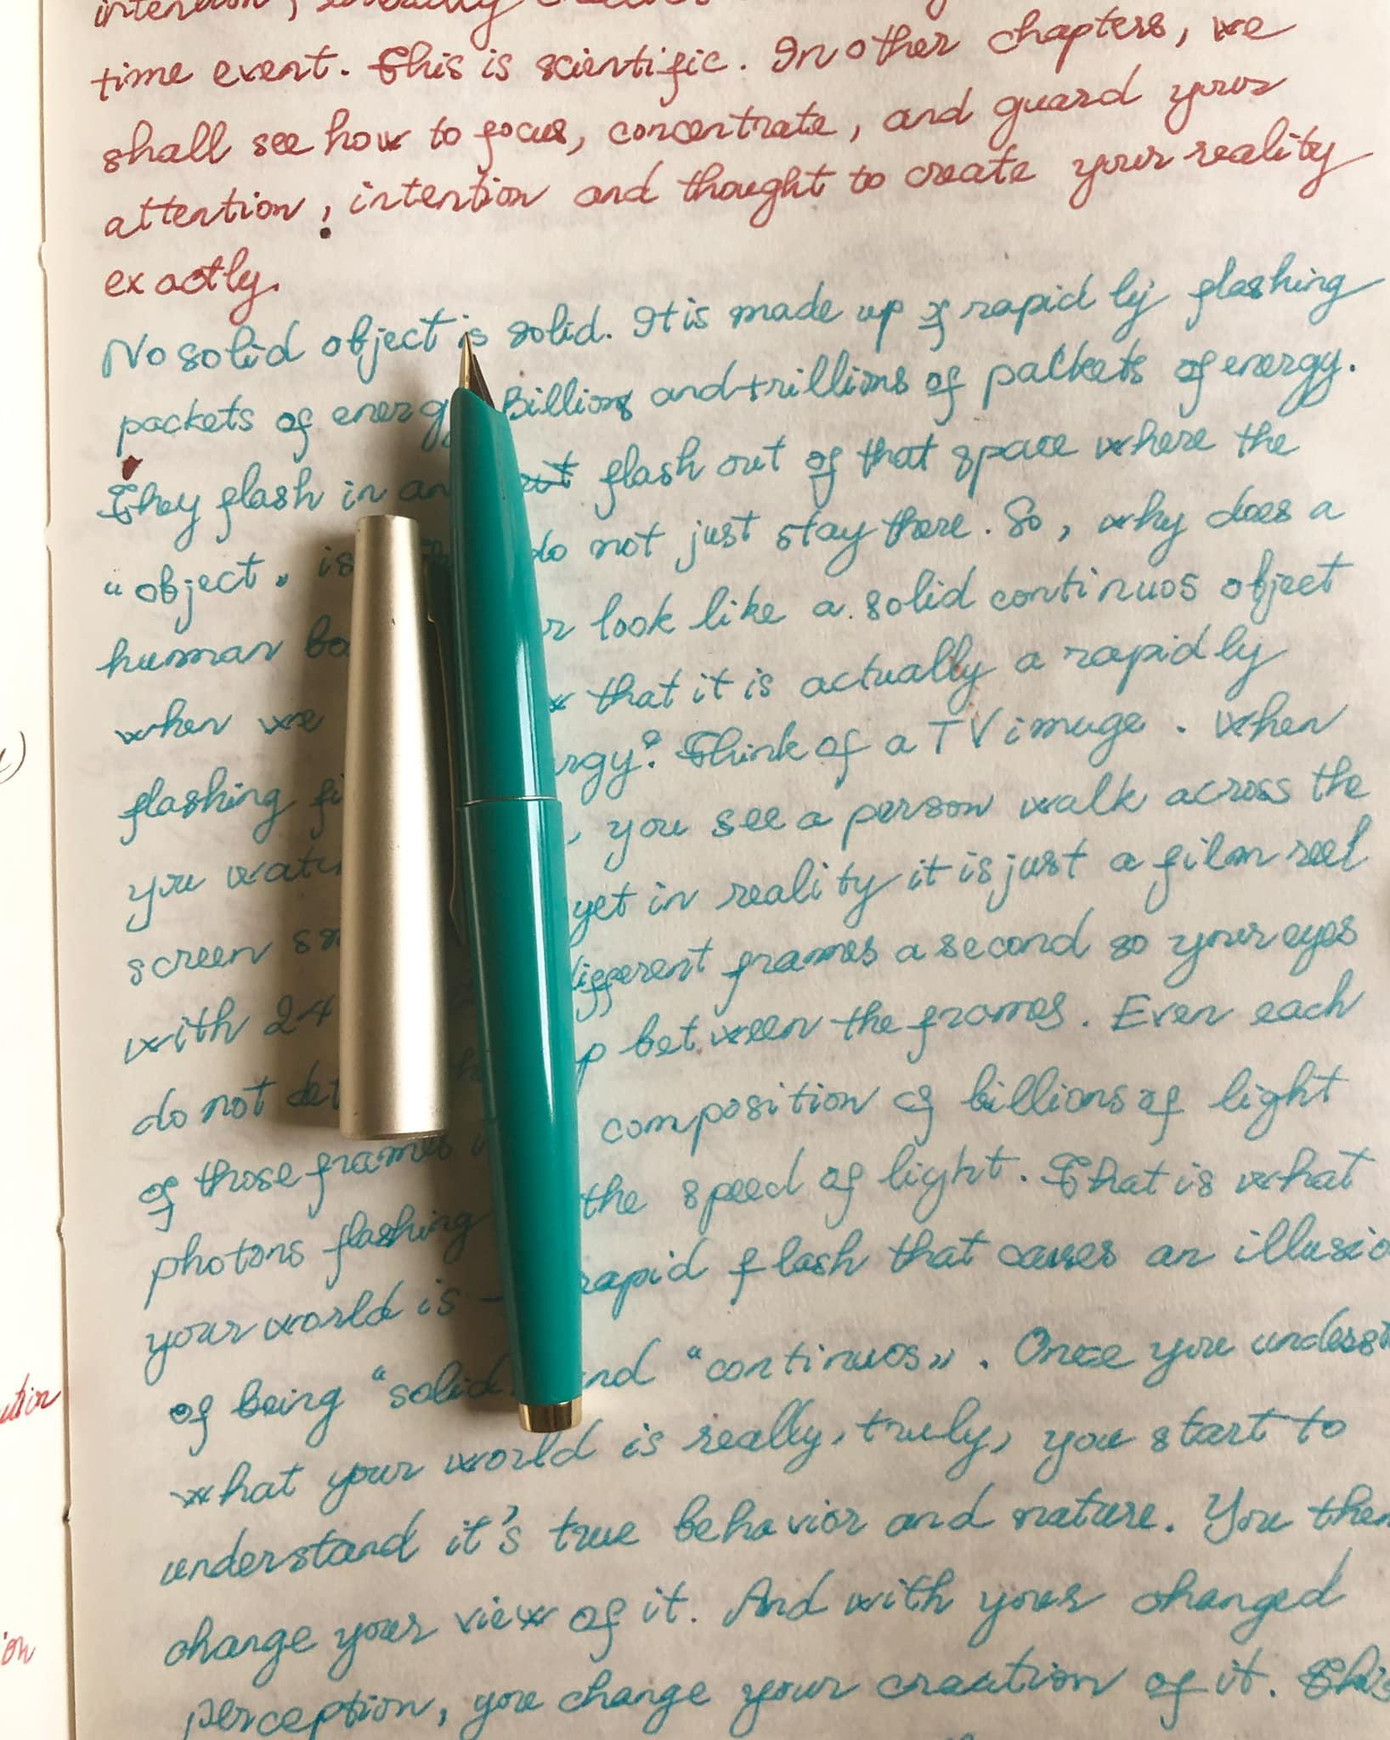 time event. This is scientific. In other chapters, we
shall see how to focus, concentrate, and guard your
attention, intention and thought to create your reality
exactly.
No solid object is solid. It is made up of rapidly flashing
packets of energy. Billions and trillions of packets of energy.
They flash in and out flash out of that space where the
"object" is do not just stay there. So, why does a
human look like a solid continuos object
when we that it is actually a rapidly
flashing Think of a TV image. When
you , you see a person walk across the
screen yet in reality it is just a film reel
with 24 different frames a second so your eyes
do not between the frames. Even each
of those frames composition of billions of light
photons flashing the speed of light. That is what
your world is – rapid flash that causes an
of being "solid" and "continuos". Once you
what your world is really, truly, you start to
understand it's true behavior and nature. You then
change your view of it. And with your changed
perception, you change your creation of it. This
ution
ion